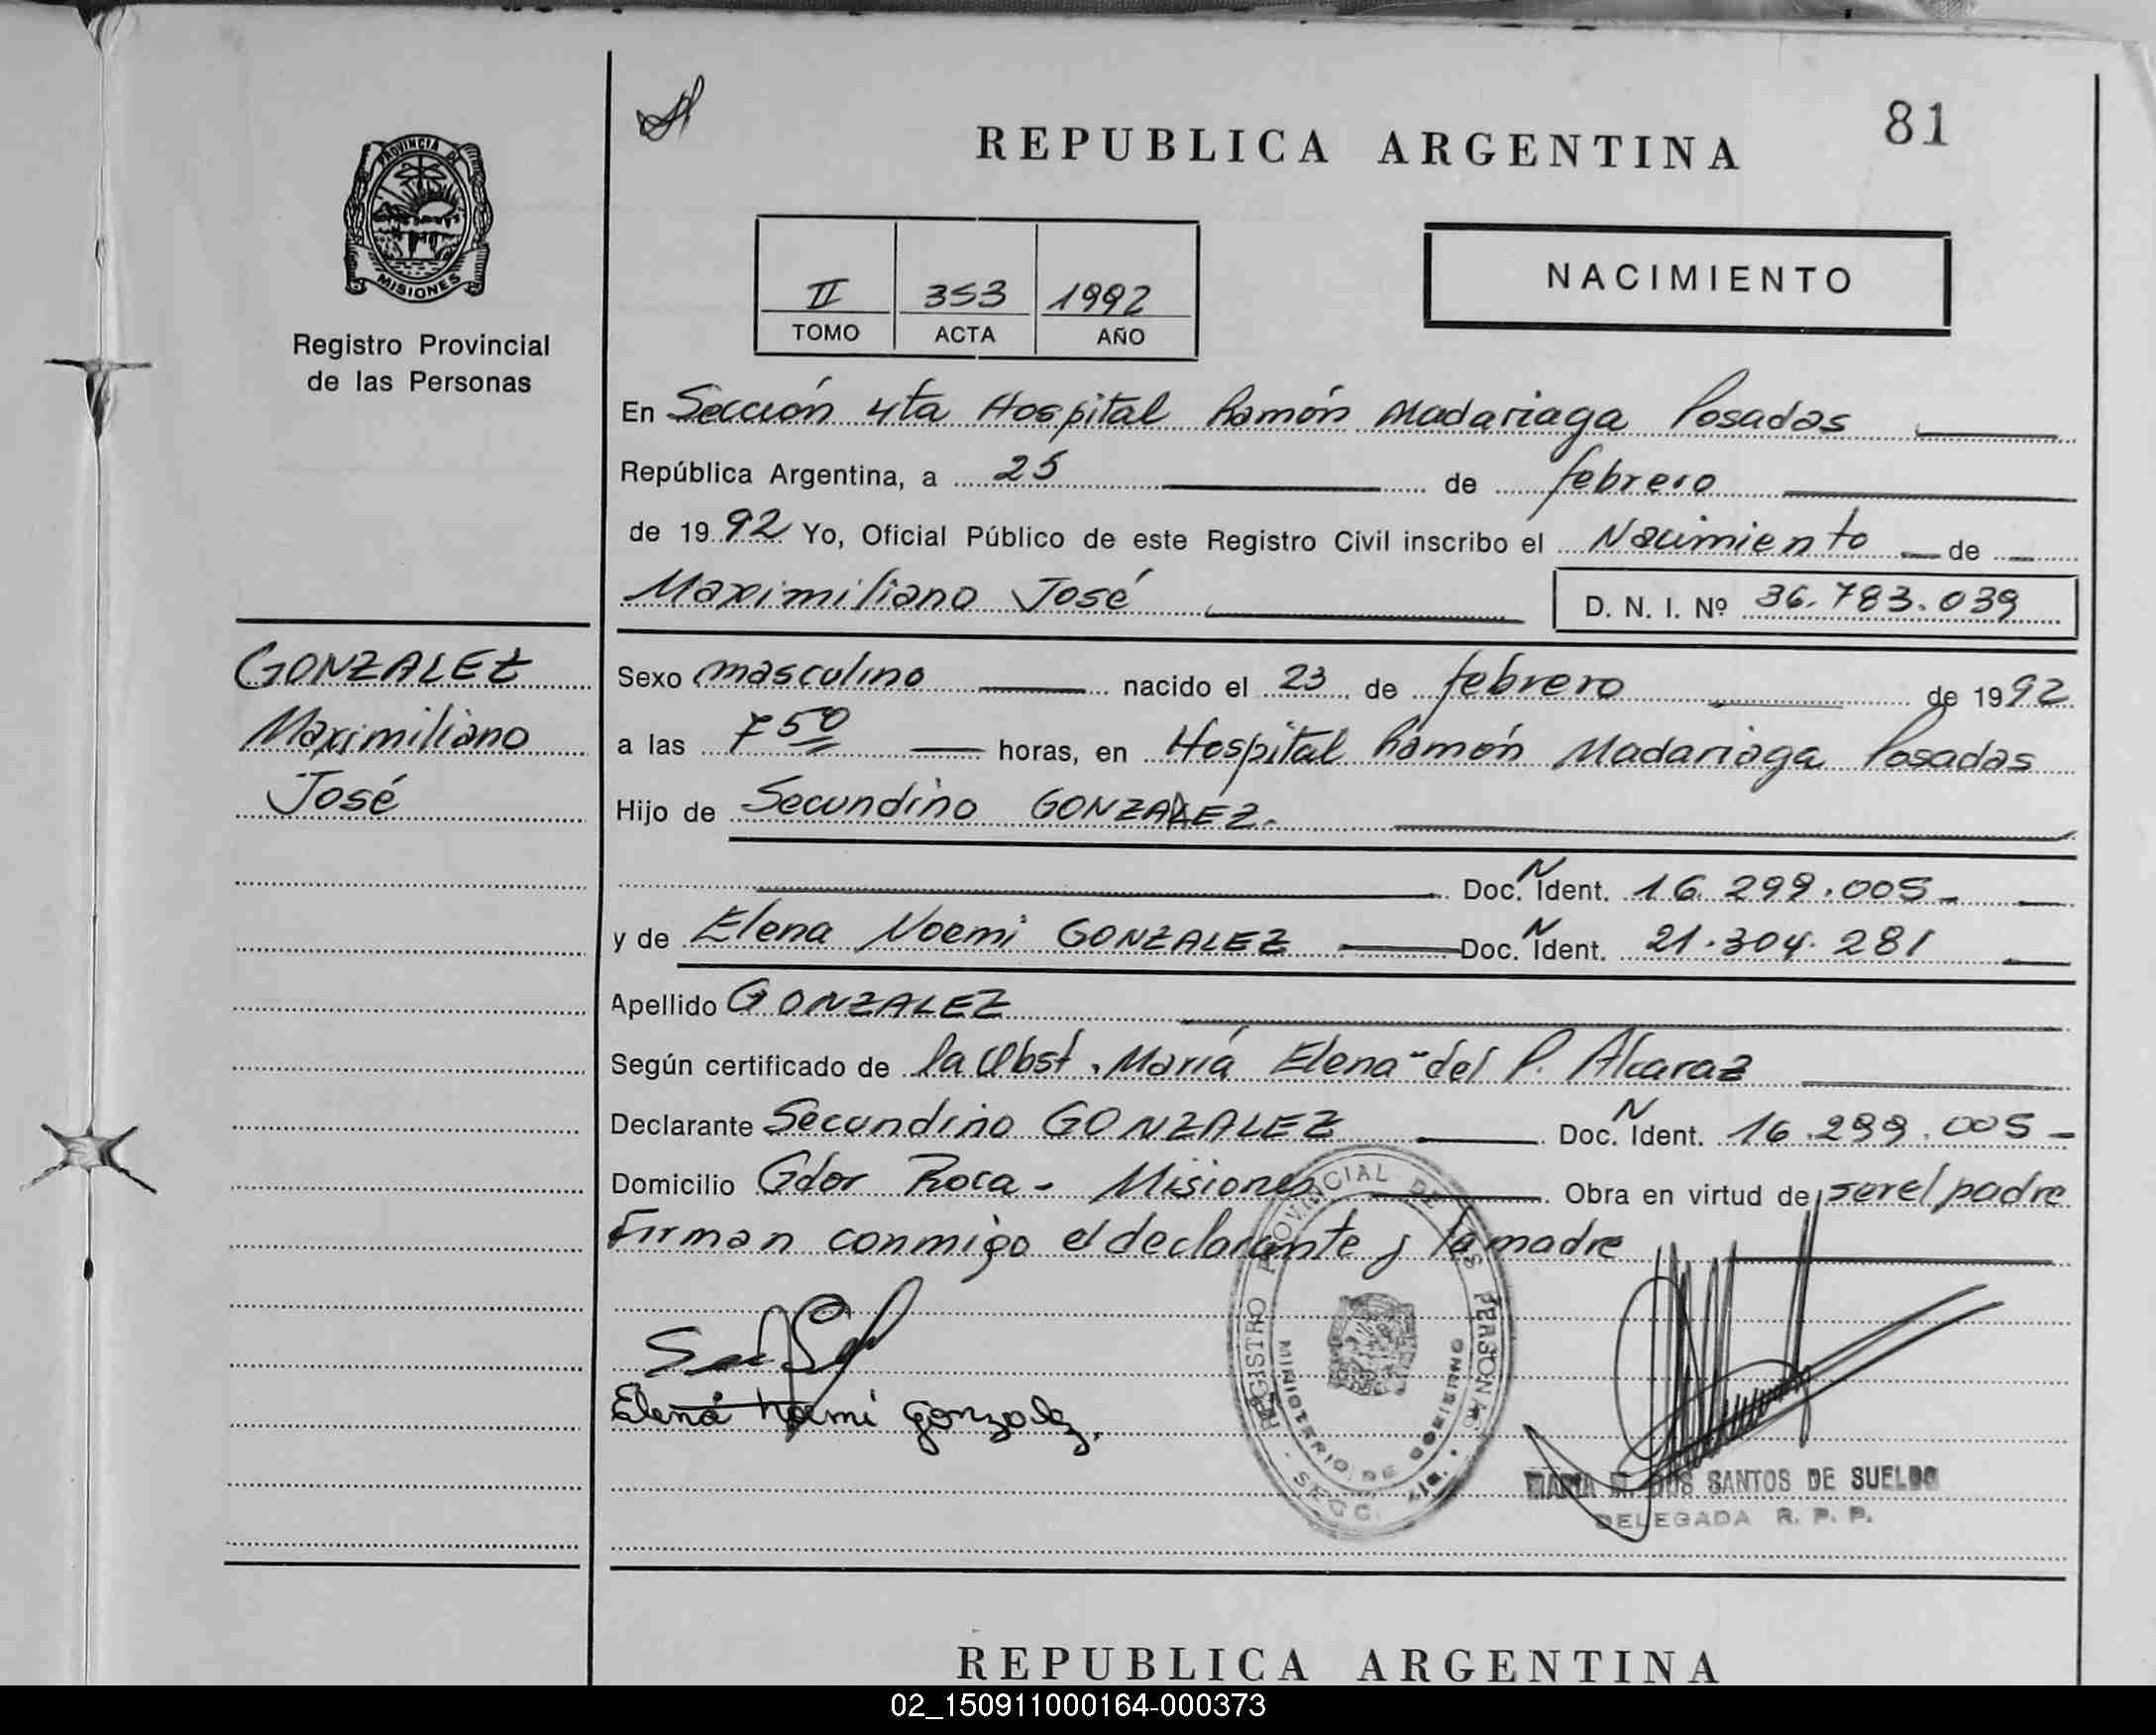 81
REPUBLICA ARGENTINA
PROVINCIA DE
MISIONES
Registro Provincial
de las Personas
NACIMIENTO
II 353 1992
TOMO ACTA AÑO
En Sección 4ta Hospital Ramón Madariaga Posadas
República Argentina, a 25 de febrero
de 1992 Yo, Oficial Público de este Registro Civil inscribo el Nacimiento de
Maximiliano José D. N. I. Nº 36.783.039
GONZALEZ
Maximiliano
José
Sexo masculino nacido el 23 de febrero de 1992
a las 7 50 horas, en Hospital Ramón Madariaga Posadas
Hijo de Secundino GONZALEZ.
Doc. N Ident. 16.299.005
y de Elena Noemi GONZALEZ Doc. N Ident. 21.304.281
Apellido GONZALEZ
Según certificado de la Obst. María Elena del P. Alcaraz
Declarante Secundino GONZALEZ Doc. N Ident. 16.299.005
Domicilio Gdor Roca - Misiones Obra en virtud de ser el padre
Firman conmigo el declarante y la madre
Elena Noemi Gonzalez.
REGISTRO PROVINCIAL DE LAS PERSONAS
MINISTERIO DE GOBIERNO
SECC.
MARIA DOS SANTOS DE SUELDO
DELEGADA R. P. P.
REPUBLICA ARGENTINA
02_150911000164-000373